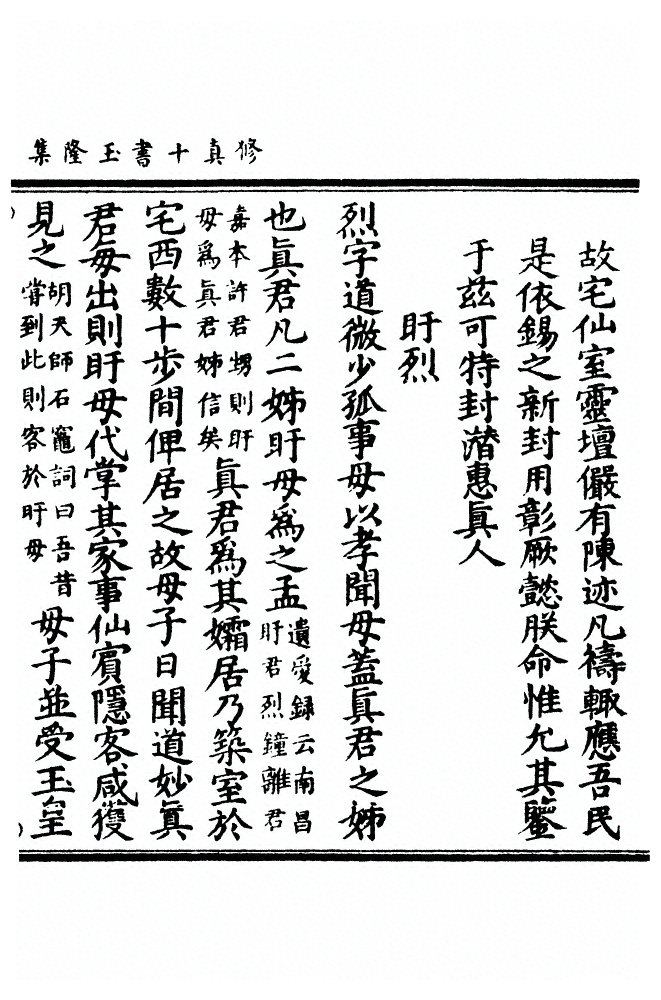 修真十書玉隆集
故宅仙室靈壇儼有陳迹凡禱輙應吾民
是依錫之新封用彰厥懿朕命惟允其鑒
于茲可特封潛惠眞人
盱烈
烈字道微少孤事母以孝聞母蓋眞君之姊
也眞君凡二姊盱母爲之孟遺愛録云南昌盱君烈鐘離君
嘉本許君甥則盱母爲眞君姊信矣眞君爲其孀居乃築室於
宅西數十步間俾居之故母子日聞道妙眞
君每出則盱母代掌其家事仙賓隱客咸獲
見之胡天師石竈詞曰吾昔嘗到此則客於盱母母子並受玉皇